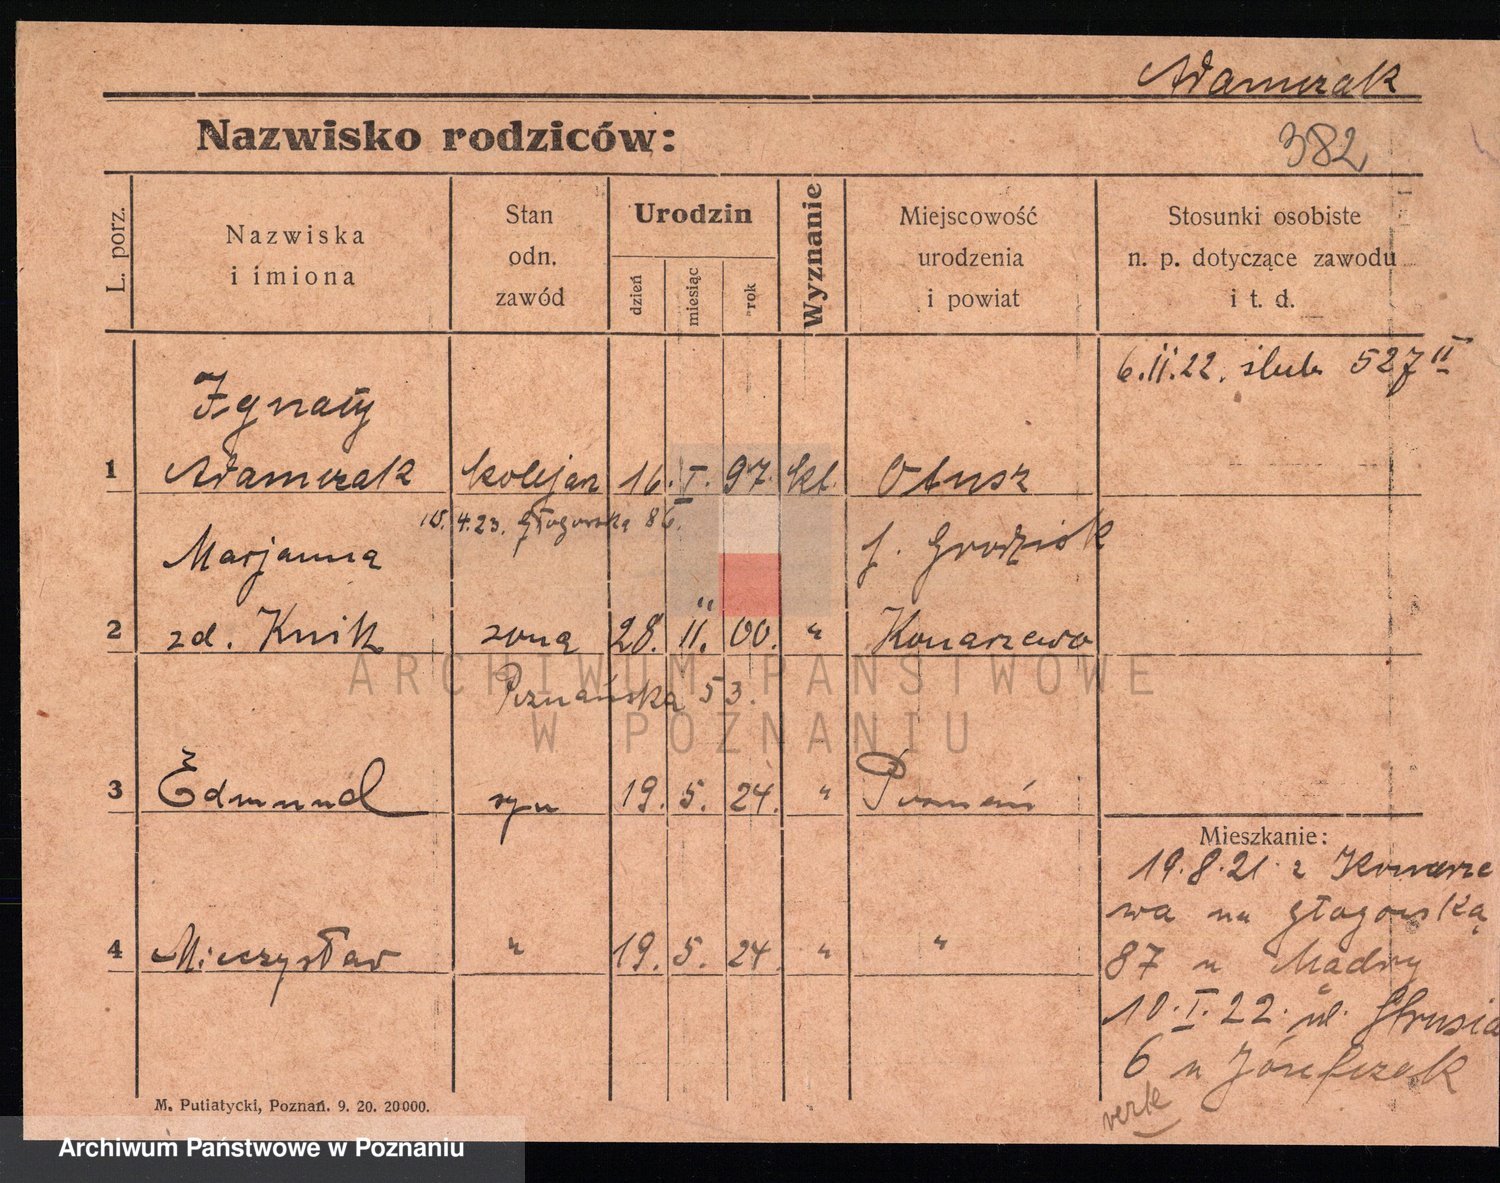 Adamczak
Nazwisko rodziców:
382
L. porz.
Nazwiska
i imiona
Stan
odn.
zawód
Urodzin
dzień
miesiąc
rok
Wyznanie
Miejscowość
urodzenia
i powiat
Stosunki osobiste
n. p. dotyczące zawodu
i t. d.
6.II.22. ślub 527 II
Ignacy
1 Adamczak kolejarz 16. I. 97. kt. Otusz
15. 4.23. Głogowska 86. p. Grodzisk
Marjanna
2 zd. Knik żona 28. II. 00. " Konarzewo
Poznańska 53.
3 Edmund syn 19. 5. 24. " Poznań
Mieszkanie:
19.8.21. z Konarze
wa na Głogowską
4 Mieczysław " 19. 5. 24. " "
87 u Mądry
10.I.22. ul. Strusia
6 u Józefczak
M. Putiatycki, Poznań. 9. 20. 20000.
ARCHIWUM PAŃSTWOWE
W POZNANIU
Archiwum Państwowe w Poznaniu